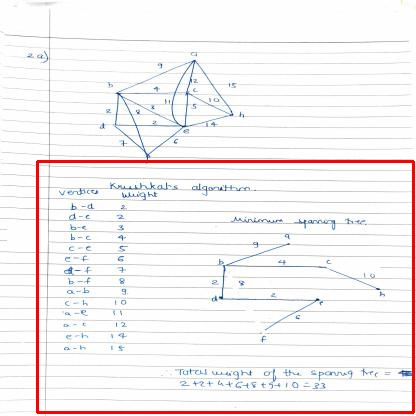 2a)
a
9
12
15
b
4
c
11
10
2
8
3
5
h
d
2
e
14
7
6
Krushkal's algorithm.
vertices weight
b-d 2
d-e 2
b-e 3
b-c 4
c-e 5
e-f 6
d-f 7
b-f 8
a-b 9
c-h 10
a-e 11
a-c 12
e-h 14
a-h 15
Minimum
tree
a
9
b
4
c
10
2
8
h
d
2
e
6
f
∴ Total weight of the
tree =
2+2+4+6+8+9+10=33